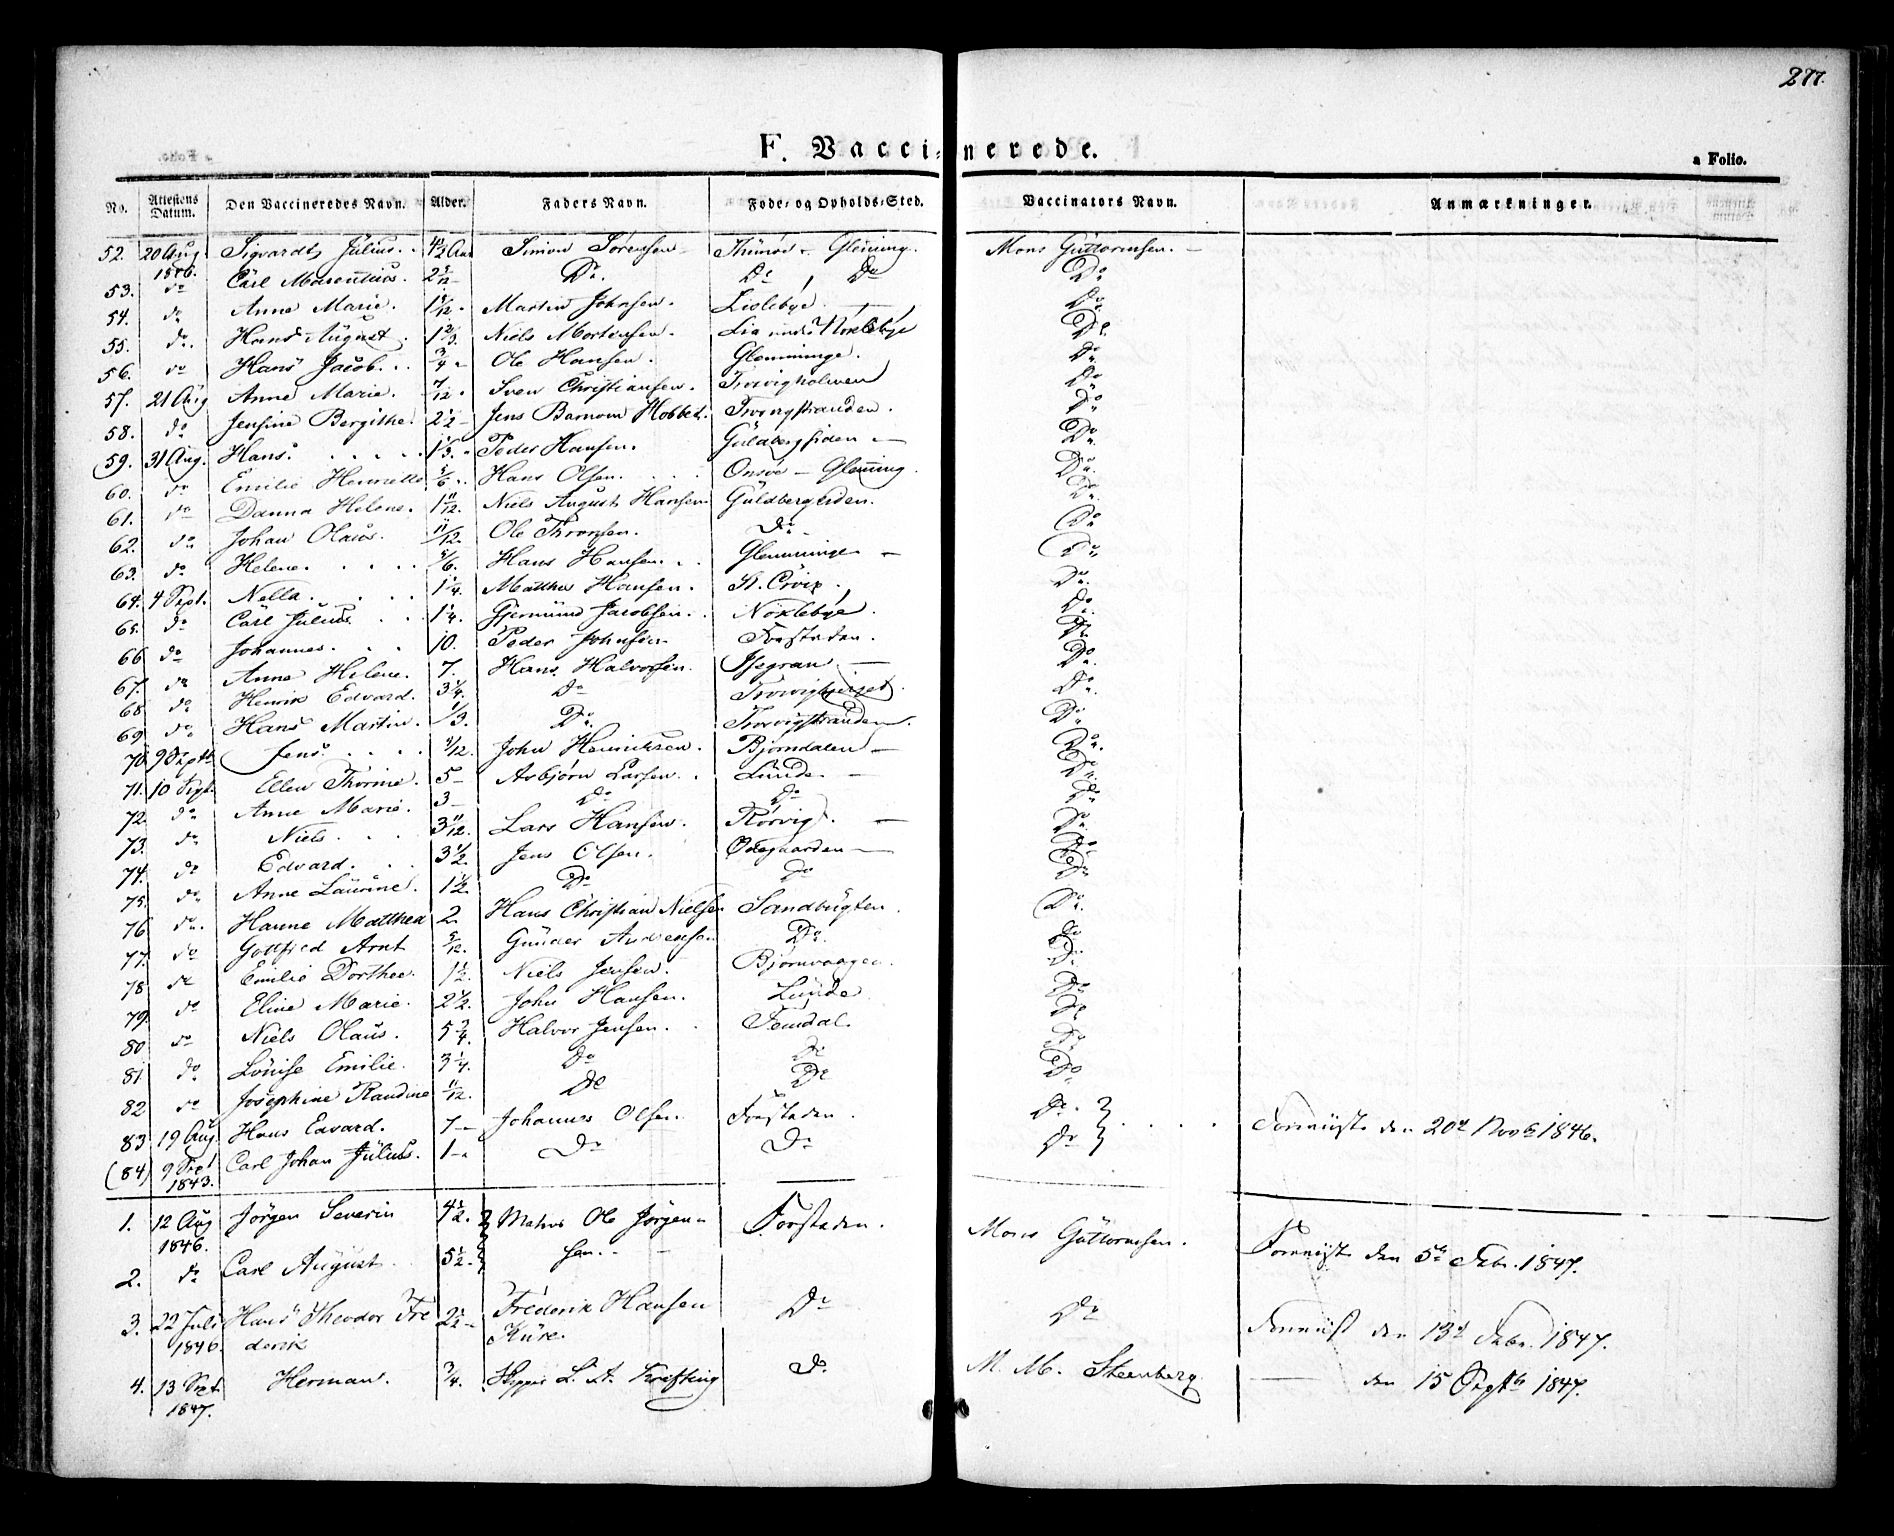 277.
F. Vaccinerede.
a Folio.
No. Attestens Datum. Den Vaccineredes Navn. Alder. Faders Navn. Føde- og Opholds-Sted. Vaccinators Navn. Anmærkninger.
52. 20 Aug 1846. Sigvardt Julius. Simon Sørensen Thunøe - Glemming. Mons Guttormsen.
53. do Carl Do. Do Do Do
54. do Anne Marie. Martin Johnsen. Lislebye. Do
55. do. Hans August. Niels Mortensen. Lia under Noklebye Do
56. do Hans Jacob. 3/4 Ole Hansen. Glemminge. Do
57. 21 Aug Anne Marie. 7/12 Sven Christiansen. Do
58. do Jensine Bergithe. 2 1/2 Jens Hobbel. Do
(59. 31 Aug. Hans. 1 1/3. Peder Hansen. Guldbergsiden Do
60. do Emilie Henriette 5/6 Hans Olsen. Onsøe - Glemming. Do
61. do Danna Helene. 1 11/12. Niels August Hansen Guldbergsiden. Do
62. do Johan Olaus. 11/12. Ole Thronsen. Do Do
63. do Helene. 5/6. Hans Hansen. Glemminge Do
64. 4 Sept. Nella. 1 1/4. Matthis Hansen. St. Croix. Do
65. do Carl Julius 1 1/4. Gjermund Jacobsen. Noklebye. Do
66 do Johannes. 10. Peder Johnsen. Forstaden. Do
67. do Anne Helene. 7. Hans Halvorsen. Isegran Do
68 do Henrik Edvard. 3 1/4. Do Do
69 do Hans Martin. 1/3. Do. Do
70 9 Septb. Jens. John Henriksen. Bjørndalen Do.
71. 10 Sept. Ellen Thorine. 5 Asbjørn Larsen. Lunde. Do
72. do Anne Marie. 3 Do Do Do
73. do Niels. 3 11/12. Lars Hansen. Rørvig. Do
74. do Edvard. 3 1/2. Jens Olsen. Ødegaarden Do
75. do Anne Laurine. 1 1/2. Do Do Do
76 do. Hanne Matthea 2. Hans Christian Nielsen Sandbugten. Do.
77. do Gottfred Arnt 5/12. Gunder Andersen Do. Do
78 do Emilie Dorthee. 1 1/2. Niels Jensen. Bjørnvaagen. Do
79. do Eline Marie. 2 1/2. John Hansen. Lunde Do
80 do Niels Olaus. 5 3/4. Halvor Jensen. Femdal. Do
81. do Louise Emilie. 3 1/4. Do Do Do
82 do Josephine Randine 11/12. Do Do Do
83 19 Aug. Hans Edvard. 7 Johannes Olsen Forstaden. Do. Fornyist den 20de Novb 1846.
(84) 9 Sept 1843. Carl Johan Julius. 1 Do Do Do
1. 12 Aug 1846. Jørgen Severin 4 1/2. Mathis Ole Jørgensen. Forstaden. Mons Guttormsen. Fornyist den 5te Febr. 1847.
2. do Carl August 5 1/2.
3. 22 Juli 1846. Hans Theodor Frederik 2 1/2 Frederik Hansen Kure. Do Do Fornyist den 13de Febr. 1847.
4. 13 Sept 1847. Herman. 3/4. Skipper L. A. Krefting Do M. M. Steenberg. — den 15 Septb 1847.